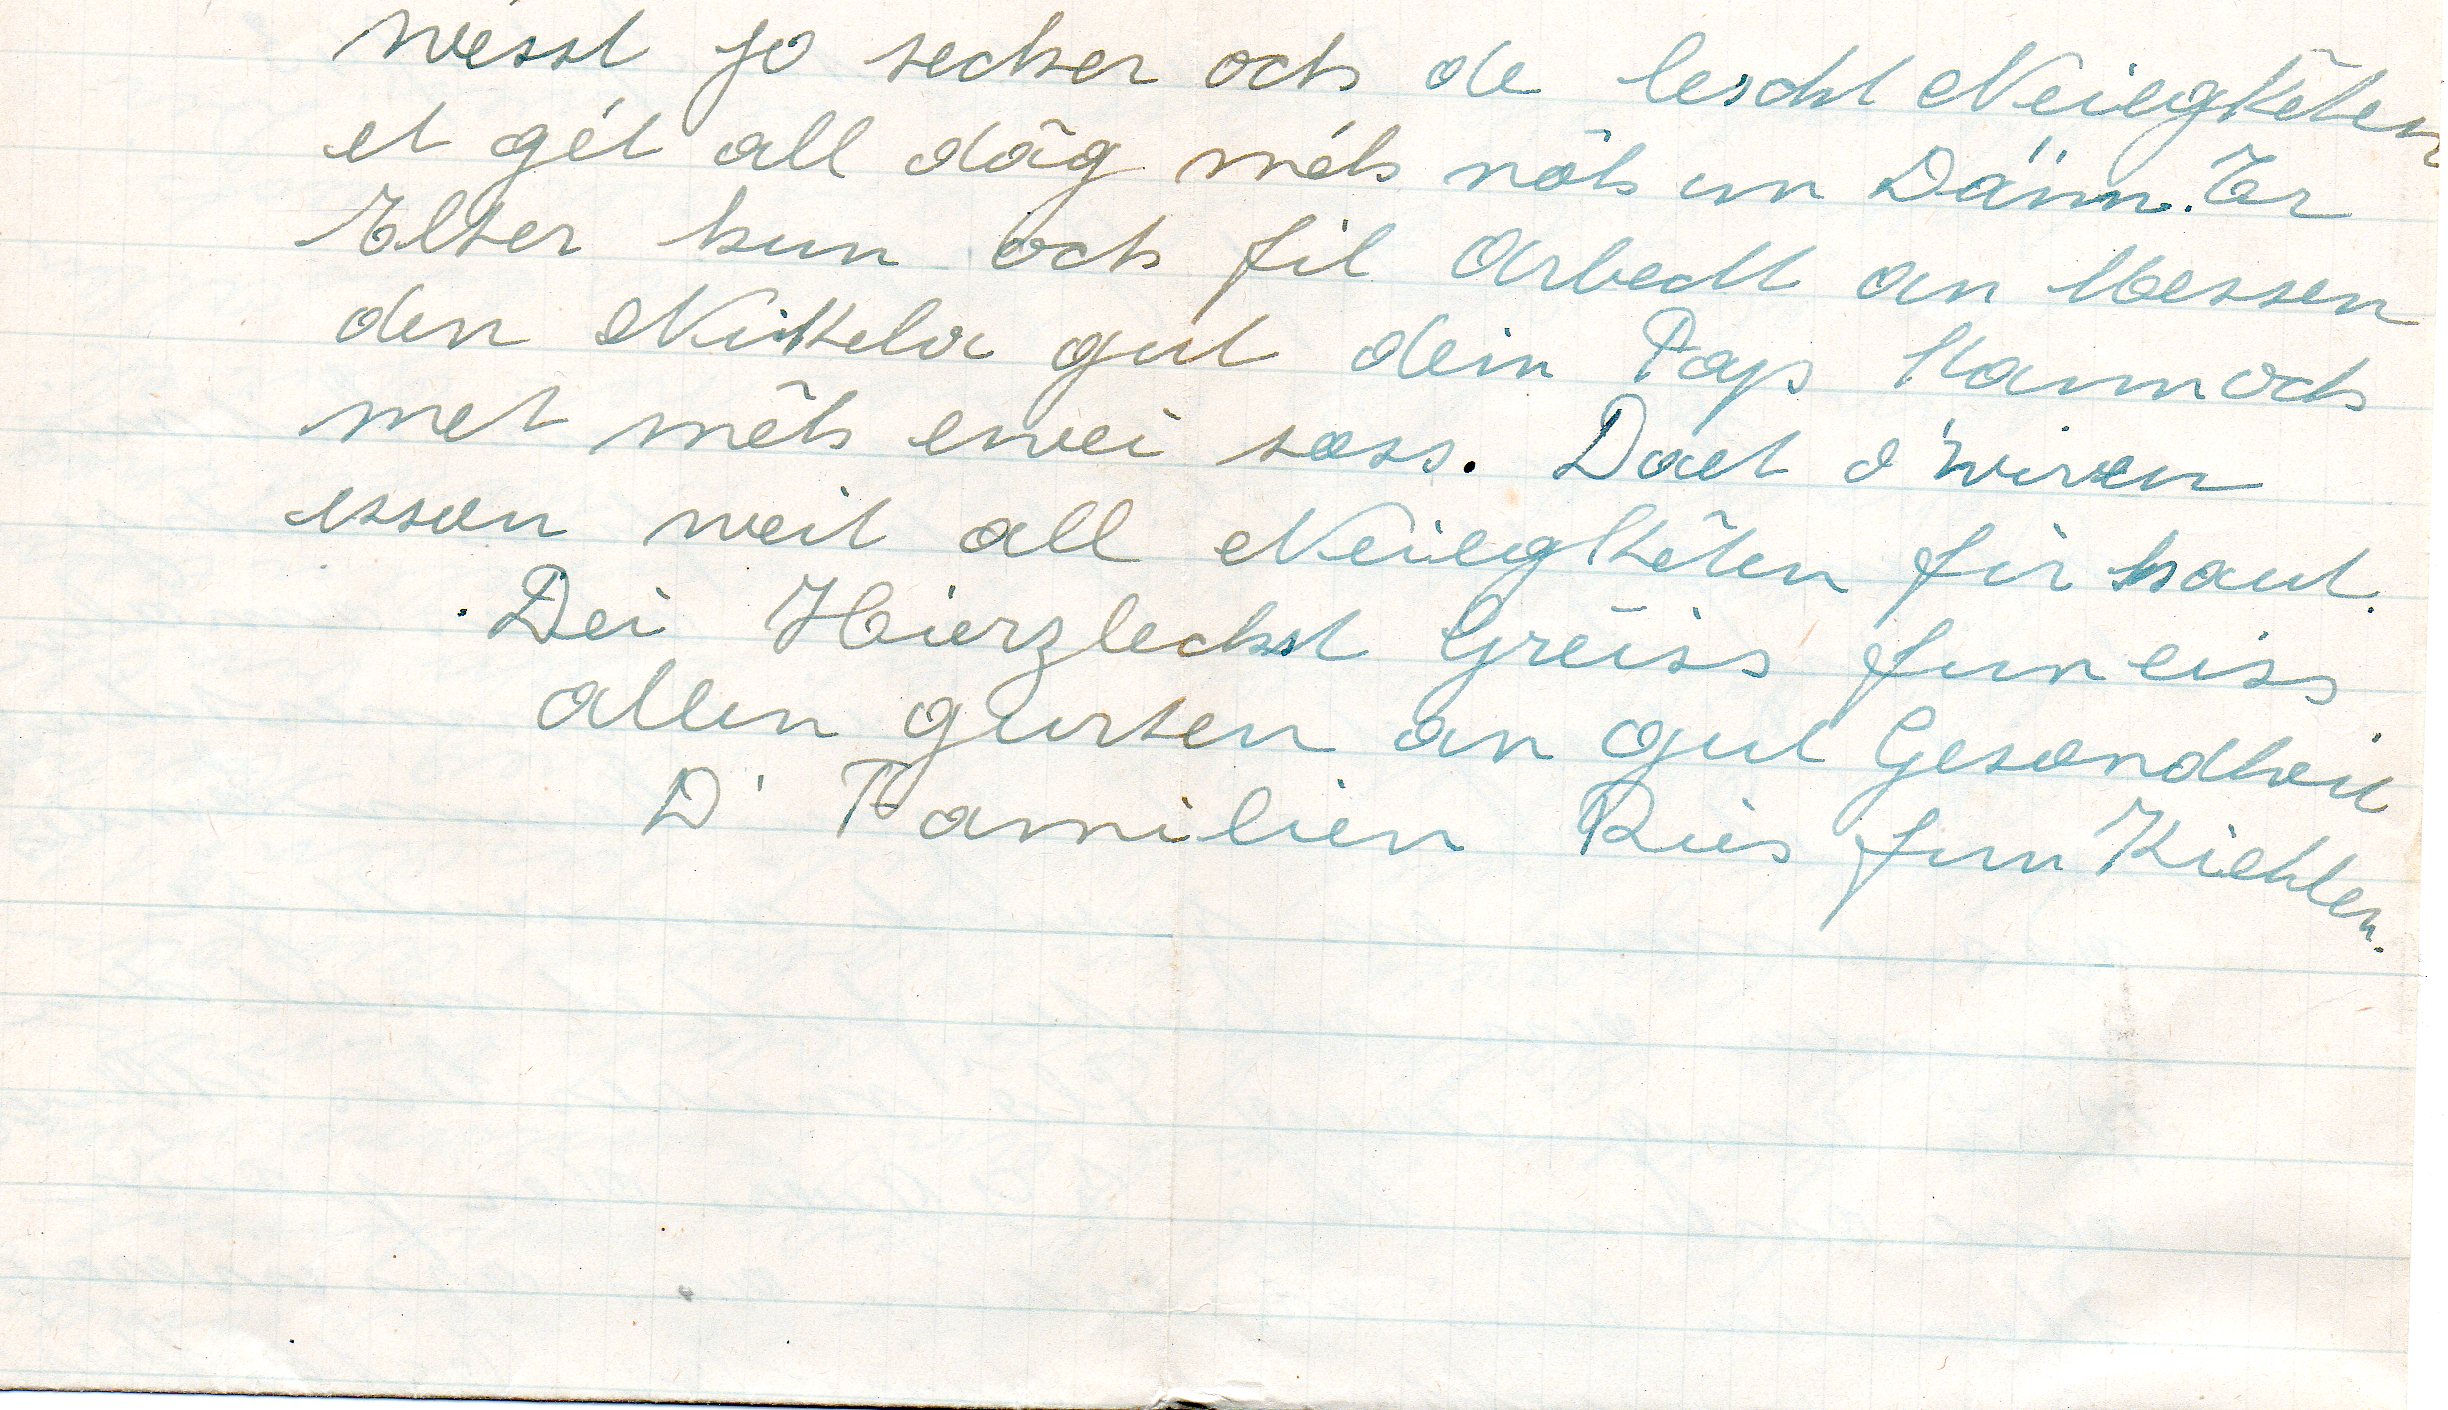 wesst jo secher och de lescht Neiegketen
et gét all dāg méh nōh un Dänn. Er
Elter hun och fil Arbecht an Messen
den Nikela gut dein Pap kann och
met mêh ewei soss. Daet wiren
esson weit all Neiegkêten fir haut.
Dei Hierzlechst Grēiss fun eiss
allen gursten an gut Gesondheit
D' Familien Ries fun Kiehlen.